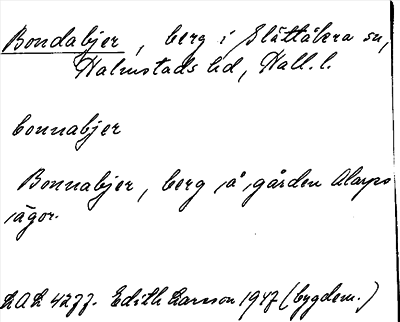 Bondabjer, berg i Slättåkra sn,
Halmstads hd, Hall. l.
bonnabjer
Bonnabjer, berg å gården Alarps
ägor.
LAL 4277. Edith Larsson 1947 (bygdem.)